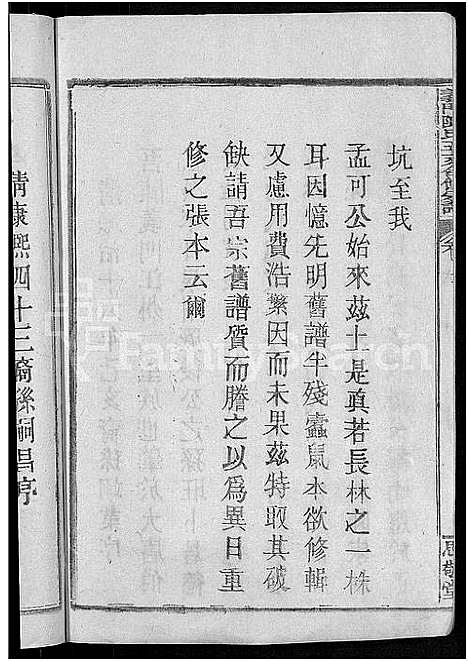 坑至我
孟可公始來茲土是眞若長林之一株
耳因憶先明舊譜半殘蠧鼠本欲修輯
又慮用費浩繁因而未果茲特取其破
缺請吾宗舊譜質而謄之以爲異日重
修之張本云爾
清康熙四十三裔孫嗣昌序
思敬堂
FamilySearch